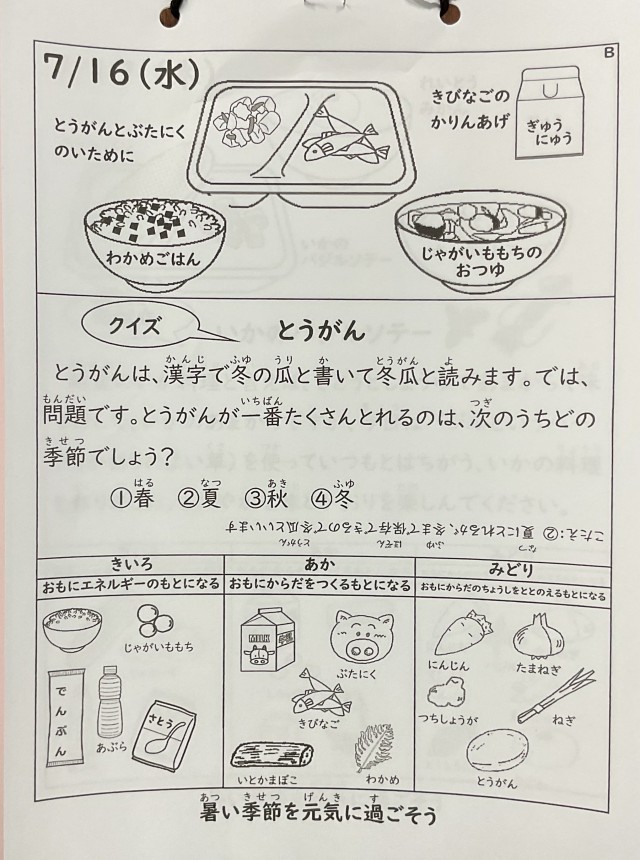 B
7/16(水)
とうがんとぶたにく
のいために
きびなごの
かりんあげ
ぎゅう
にゅう
わかめごはん
じゃがいももちの
おつゆ
クイズ
とうがん
とうがんは、漢字で冬の瓜と書いて冬瓜と読みます。では、
問題です。とうがんが一番たくさんとれるのは、次のうちどの
季節でしょう?
①春 ②夏 ③秋 ④冬
こたえ:② 夏にとれるが、冬まで保存できるので冬瓜といいます
きいろ
おもにエネルギーのもとになる
じゃがいももち
でんぷん
あぶら
さとう
あか
おもにからだをつくるもとになる
MILK
ぶたにく
きびなご
いとかまぼこ
わかめ
みどり
おもにからだのちょうしをととのえるもとになる
にんじん
たまねぎ
つちしょうが
ねぎ
とうがん
暑い季節を元気に過ごそう